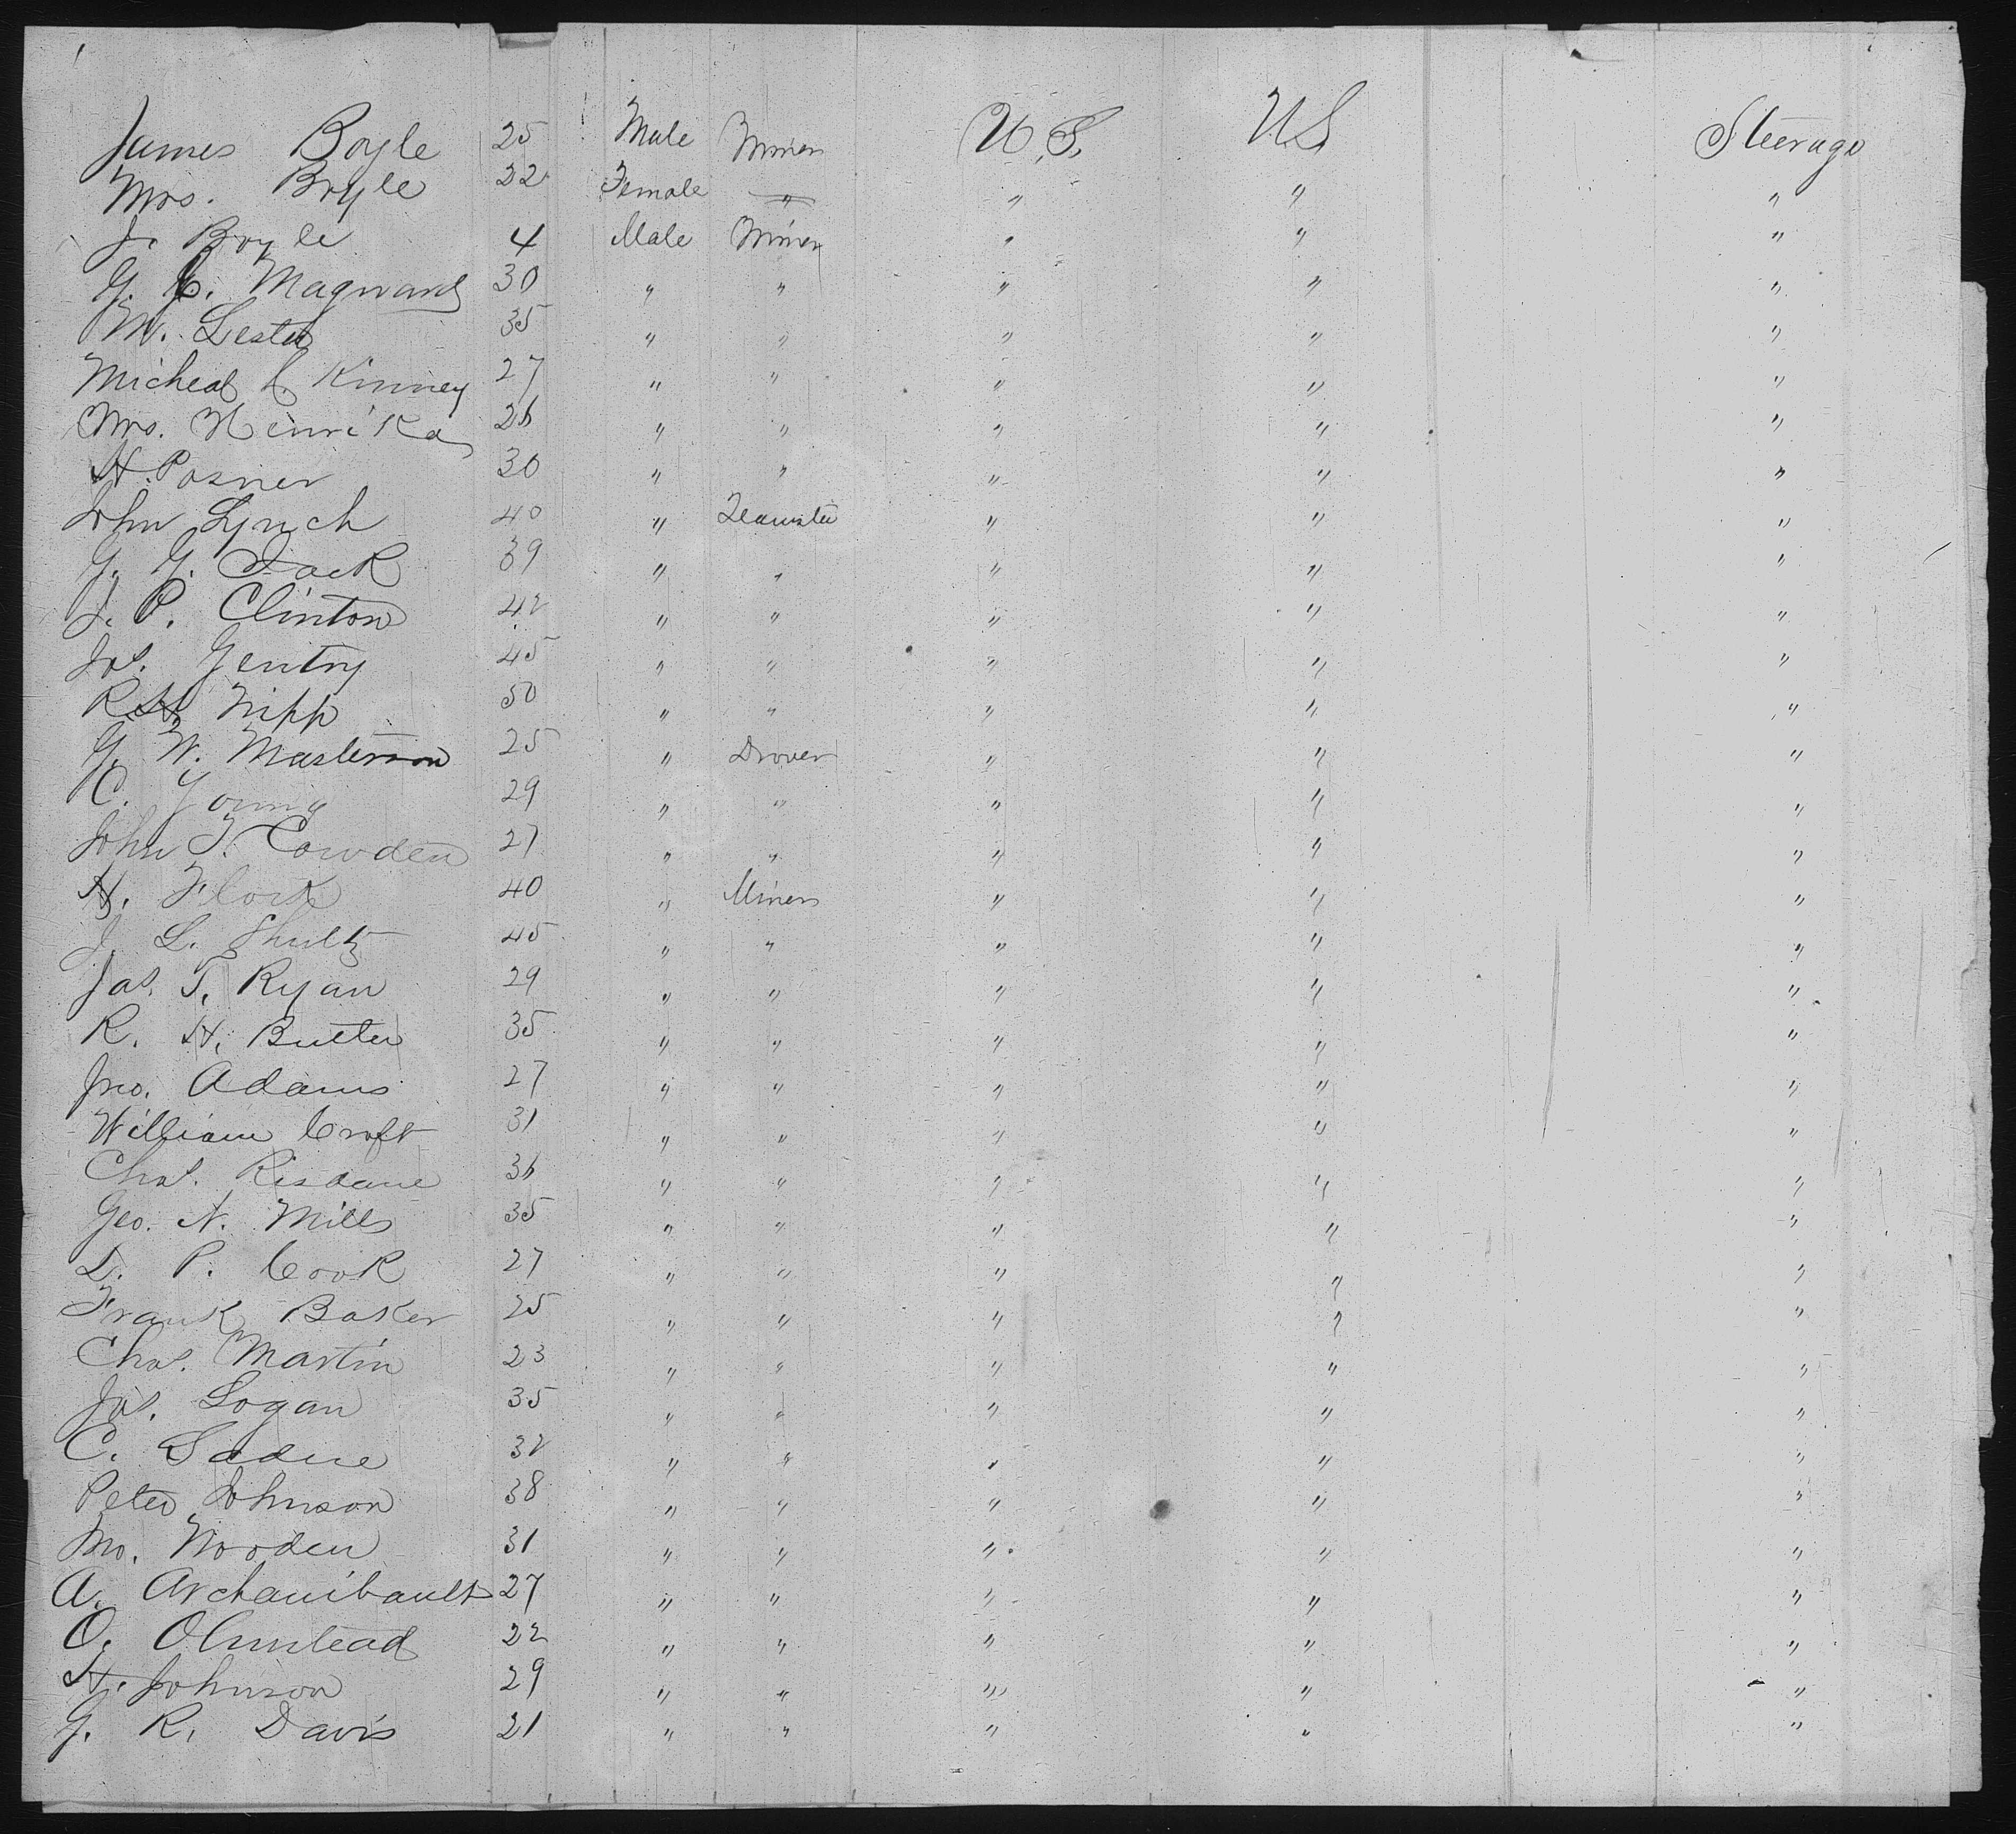 James Boyle 25 Male Miner U.S. U.S Steerage
Mrs. Boyle 22 Female " " " "
J. Boyle 4 Male Miner " " "
G. C. Magward 30 " " " " "
M. Lester 35 " " " " "
Micheal C Kinney 27 " " " " "
Mrs. Henrika 26 " " " " "
H. Posner 30 " " " " "
John Lynch 40 " Teamster " " "
G. G. Jack 39 " " " " "
J. P. Clinton 42 " " " " "
Jas. Gentry 45 " " " " "
R. H. Nipp 50 " " " " "
G. W. Masterson 25 " Drover " " "
C. Young 29 " " " " "
John T. Cowden 27 " " " " "
H. Flock 40 " Miner " " "
J. L. Shultz 45 " " " " "
Jas. T. Ryan 29 " " " " "
R. H. Butler 35 " " " " "
Jno. Adams 27 " " " " "
William Croft 31 " " " " "
Chas. Risdane 36 " " " " "
Geo. N. Mills 35 " " " " "
L. P. Cook 27 " " " " "
Frank Baker 25 " " " " "
Chas. Martin 23 " " " " "
Jas. Logan 35 " " " " "
C. Sadue 32 " " " " "
Peter Johnson 38 " " " " "
Mo. Wooden 31 " " " " "
A. Archambault 27 " " " " "
O. Olmstead 22 " " " " "
H. Johnson 29 " " " " "
G. R. Davis 21 " " " " "